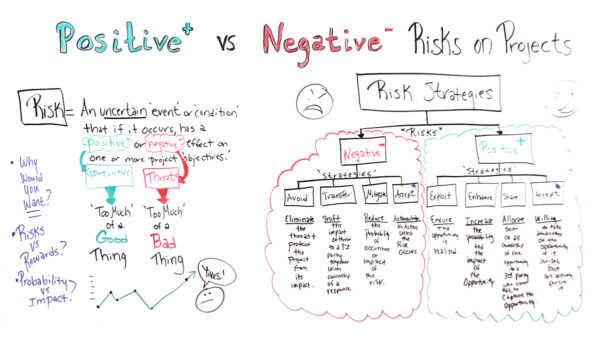 Positive+ vs Negative- Risks on Projects
Risk = An uncertain 'event' or 'condition'
that if it occurs, has a
positive+ or negative- effect on
one or more project objectives.'
Opportunities
Threats
'Too Much'
of a
Good
Thing
'Too Much'
of a
Bad
Thing
• Why
Would
You
Want?
• Risks
vs
Rewards?
• Probability
vs
Impact.
Yikes!
Risk Strategies
"Risks"
Negative-
Positive+
'Strategies'
Avoid
Transfer
Mitigate
Accept*
Eliminate
the
threat &
protect
the
Project
from
its
impact.
Shift
the
impact
of threat
to a 3rd
party
together
with
ownership
of a
response
Reduce
the
Probability
of
occurrence
or
impact
of
the
risk.
Acknowledge
No Action
Unless
the
Risk
Occurs
'Strategies'
Exploit
Enhance
Share
Accept*
Ensure
the
opportunity
is
realised
Increase
the
probability
and
the
impact
of the
Opportunity.
Allocate
Some
or all
ownership
of the
opportunity
to a
3rd party
who
able to
Capture the
Opportunity.
Willing
to take
advantage
of the
opportunity
if it
arises
but
not actively
pursue
it